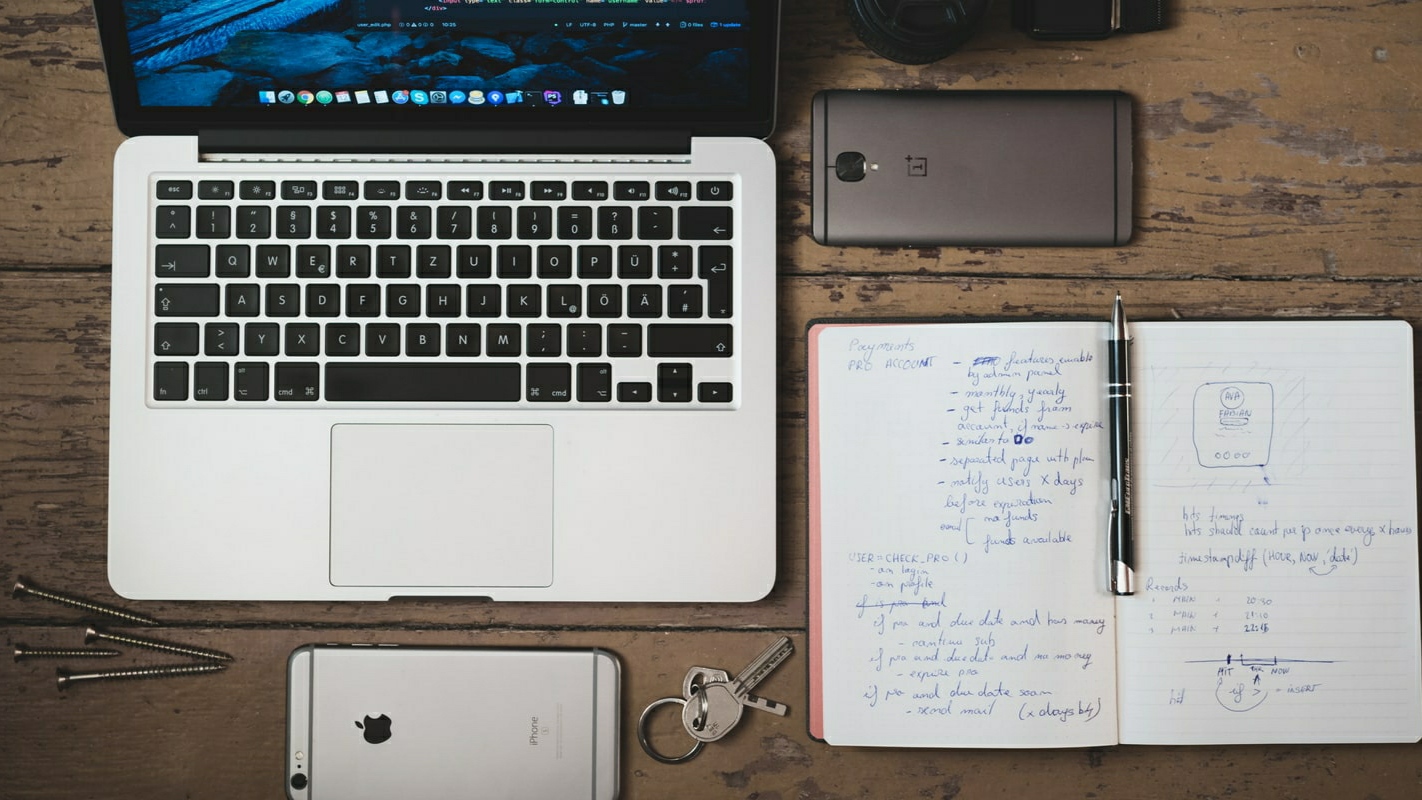 <input type="text" class="form-control" name="username" value="
</div>
user_edit.php
10:25
LF UTF-8 PHP master 0 files 1 update
esc F1 F2 F3 F4 F5 F6 F7 F8 F9 F10 F11 F12
° ! " § $ % & / ( ) = ? `
^ 1 2 3 4 5 6 7 8 9 0 ß ´
Q W E € R T Z U I O P Ü * +
A S D F G H J K L @ Ö Ä ' #
> < Y X C V B N M ; , : . _ -
fn ctrl alt cmd ⌘ ⌘ cmd alt
iPhone
1+
Payments
PRO ACCOUNT - features enable
by admin panel
- monthly, yearly
- get funds from
account, if name -> expire
- similar to
- separated page with plan
- notify users X days
before expiration
email [ no funds
funds available
USER = CHECK_PRO ()
- on login
- on profile
if is pro and
if pro and due date and has money
- continue sub
if pro and due date and no money
- expire pro
if pro and due date soon
- send mail (x days b4)
AVA
FABIAN
hits timings
hits should count per ip once every x hours
timestampdiff (HOUR, NOW, 'date')
Records
1 MAIN 20:30
2 MAIN 21:10
3 MAIN
HIT NOW
hit if > = INSERT